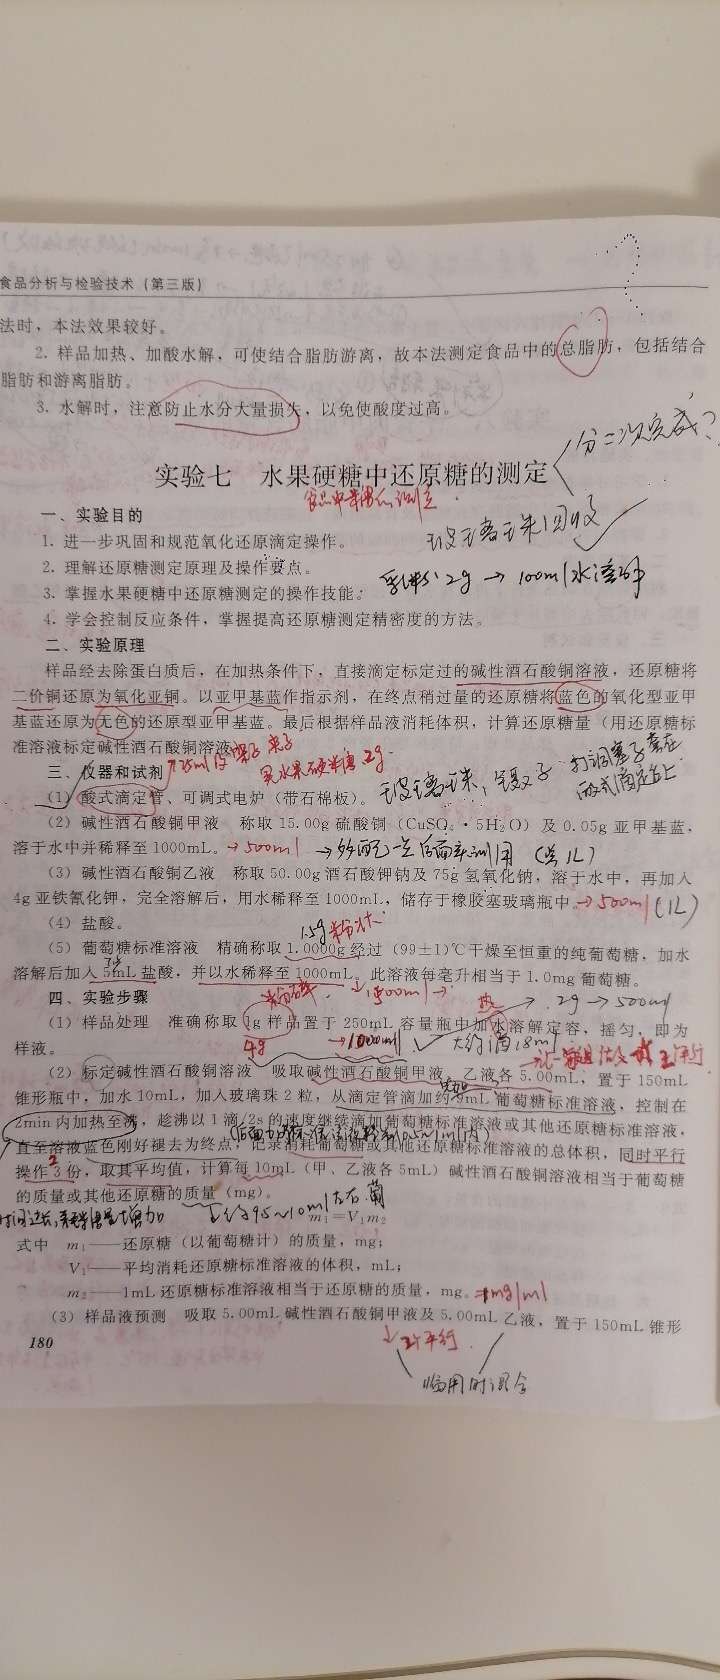 食品分析与检验技术（第三版）
法时，本法效果较好。
2. 样品加热、加酸水解，可使结合脂肪游离，故本法测定食品中的总脂肪，包括结合
脂肪和游离脂肪。
3. 水解时，注意防止水分大量损失，以免使酸度过高。
分二次完成？
实验七 水果硬糖中还原糖的测定
一、实验目的
玻璃珠回收
1. 进一步巩固和规范氧化还原滴定操作。
2. 理解还原糖测定原理及操作要点。
2g → 100ml水溶解
3. 掌握水果硬糖中还原糖测定的操作技能。
4. 学会控制反应条件，掌握提高还原糖测定精密度的方法。
二、实验原理
样品经去除蛋白质后，在加热条件下，直接滴定标定过的碱性酒石酸铜溶液，还原糖将
二价铜还原为氧化亚铜。以亚甲基蓝作指示剂，在终点稍过量的还原糖将蓝色的氧化型亚甲
基蓝还原为无色的还原型亚甲基蓝。最后根据样品液消耗体积，计算还原糖量（用还原糖标
准溶液标定碱性酒石酸铜溶液）。
水果硬糖 2g
三、仪器和试剂
玻璃珠，镊子
（1）酸式滴定管、可调式电炉（带石棉板）。
（2）碱性酒石酸铜甲液 称取 15.00g 硫酸铜（CuSO₄·5H₂O）及 0.05g 亚甲基蓝，
溶于水中并稀释至 1000mL。→500ml
（共1L）
（3）碱性酒石酸铜乙液 称取 50.00g 酒石酸钾钠及 75g 氢氧化钠，溶于水中，再加入
4g 亚铁氰化钾，完全溶解后，用水稀释至 1000mL，储存于橡胶塞玻璃瓶中。→500ml（1L）
（4）盐酸。
1.5g
（5）葡萄糖标准溶液 精确称取 1.0000g 经过（99±1）℃干燥至恒重的纯葡萄糖，加水
溶解后加入 5mL 盐酸，并以水稀释至 1000mL。此溶液每毫升相当于 1.0mg 葡萄糖。
四、实验步骤
2g → 500ml
（1）样品处理 准确称取 1g 样品置于 250mL 容量瓶中加水溶解定容，摇匀，即为
样液。
4g → 1000ml
（2）标定碱性酒石酸铜溶液 吸取碱性酒石酸铜甲液、乙液各 5.00mL，置于 150mL
锥形瓶中，加水 10mL，加入玻璃珠 2 粒，从滴定管滴加约 9mL 葡萄糖标准溶液，控制在
2min 内加热至沸，趁沸以 1 滴/2s 的速度继续滴加葡萄糖标准溶液或其他还原糖标准溶液，
直至溶液蓝色刚好褪去为终点，记录消耗葡萄糖或其他还原糖标准溶液的总体积，同时平行
2
操作 3 份，取其平均值，计算每 10mL（甲、乙液各 5mL）碱性酒石酸铜溶液相当于葡萄糖
的质量或其他还原糖的质量（mg）。
m₁=V₁m₂
式中 m₁——还原糖（以葡萄糖计）的质量，mg；
V₁——平均消耗还原糖标准溶液的体积，mL；
m₂——1mL 还原糖标准溶液相当于还原糖的质量，mg。 1mg/ml
（3）样品液预测 吸取 5.00mL 碱性酒石酸铜甲液及 5.00mL 乙液，置于 150mL 锥形
180
临用时混合